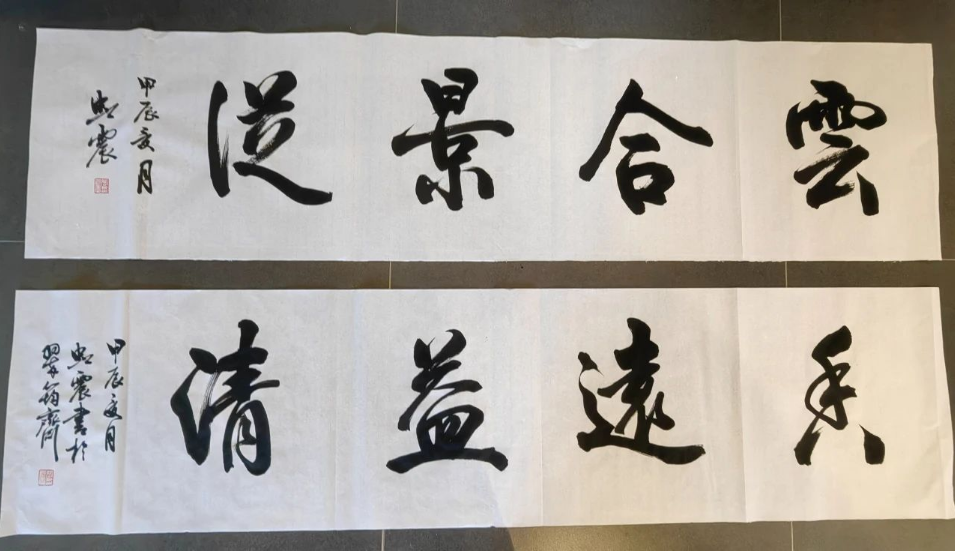 雲合景從
甲辰夏月
照震
香遠益清
甲辰夏月
照震書於
翠筠齋